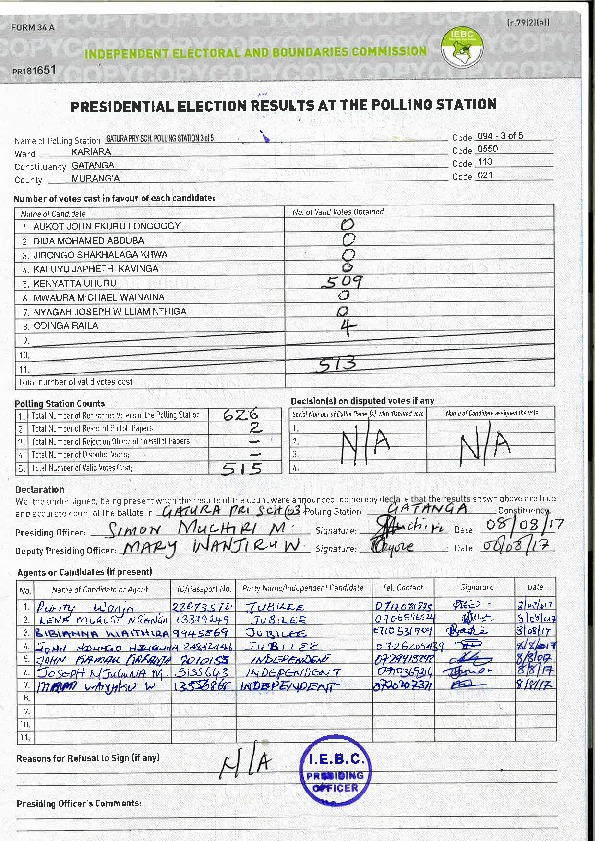 FORM 34 A
(r.79(2)(a))
INDEPENDENT ELECTORAL AND BOUNDARIES COMMISSION
IEBC
PR181651
PRESIDENTIAL ELECTION RESULTS AT THE POLLING STATION
Name of Polling Station GATURA PRY SCH. POLLING STATION 3 of 5 Code 094 - 3 of 5
Ward KARIARA Code 0550
Constituency GATANGA Code 113
County MURANG'A Code 021
Number of votes cast in favour of each candidate:
Name of Candidate No. of Valid Votes Obtained
1. AUKOT JOHN EKURU LONGOGGY 0
2. DIDA MOHAMED ABDUBA 0
3. JIRONGO SHAKHALAGA KHWA 0
4. KALUYU JAPHETH KAVINGA 0
5. KENYATTA UHURU 509
6. MWAURA MICHAEL WAINAINA 0
7. NYAGAH JOSEPH WILLIAM NTHIGA 0
8. ODINGA RAILA 4
9.
10.
11. 513
Total number of valid votes cast
Polling Station Counts
1. Total Number of Registered Voters in the Polling Station 626
2. Total Number of Rejected Ballot Papers 2
3. Total Number of Rejection Objected to Ballot Papers –
4. Total Number of Disputed Votes: –
5. Total Number of Valid Votes Cast: 515
Decision(s) on disputed votes if any
Serial Number of Ballot Paper (s) with disputed vote Name of Candidate assigned the vote
1.
2.
3.
4.
N/A N/A
Declaration
We, the undersigned, being present when the results of the count were announced, do hereby declare that the results shown above are true
and accurate count of the ballots in GATURA PRI SCH (03) Polling Station GATANGA Constituency
Presiding Officer: SIMON MUCHIRI M. Signature: Date 08/08/17
Deputy Presiding Officer: MARY WANJIRU W Signature: Date 08/08/17
Agents or Candidates (if present)
No. Name of Candidate or Agent ID/Passport No. Party Name/Independent Candidate Tel. Contact Signature Date
1. Purity JUBILEE
2. JUBILEE
3. BIBIANNA WAITHIRA 9945569 JUBILEE 8/08/17
4. JOHN JUBILEE 8/8/2017
5. JOHN KAMAU INDEPENDENT
6. JOSEPH NJUGUNA M. INDEPENDENT 8/8/17
7. W INDEPENDENT 8/8/17
8.
9.
10.
11.
Reasons for Refusal to Sign (if any) N/A
I.E.B.C.
PRESIDING
OFFICER
Presiding Officer's Comments: